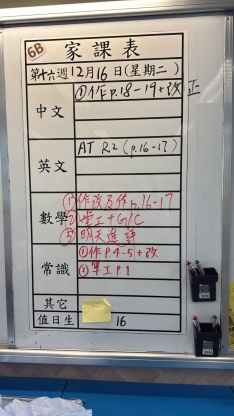 6B
家課表
第十六週12月16日(星期二)
中文
①作p.18-19+改正
英文
AT R2 (p.16-17)
數學
①作改及作p.16-17
②堂工+G/C
③明天進評
常識
①作P4-5+改
②單工P1
其它
值日生
16